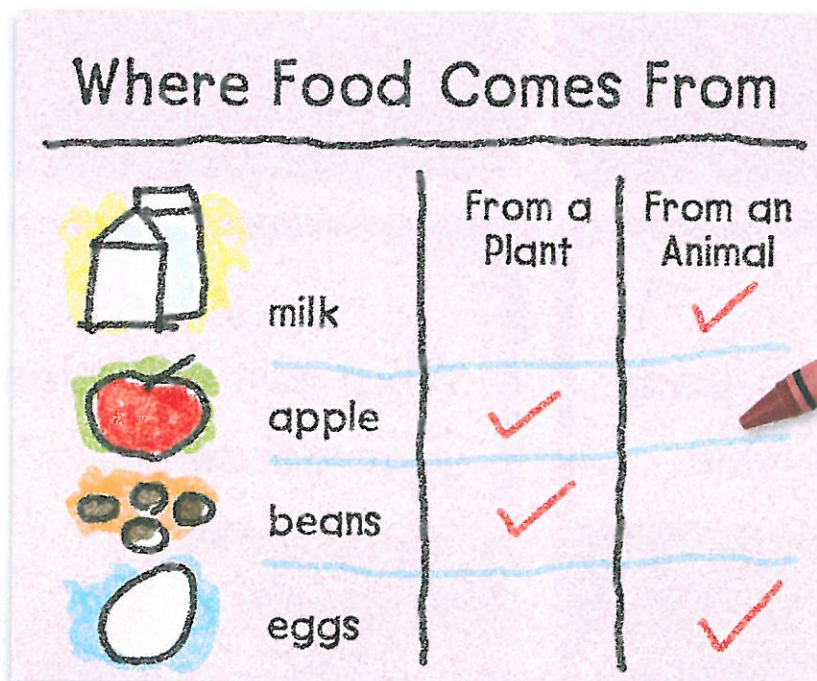 Where Food Comes From
From a
Plant
From an
Animal
milk
apple
beans
eggs